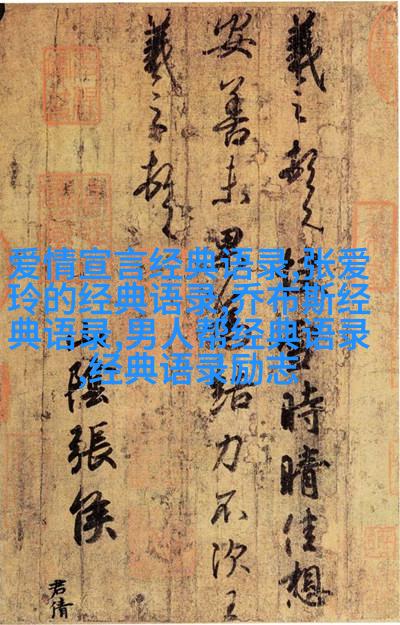 爱情宣言经典语录,张爱
玲的经典语录,乔布斯经
典语录,男人帮经典语录
,经典语录励志
羲之頓首時晴佳想
安善未果結力不次王
羲之頓首
陰張侯
君倩